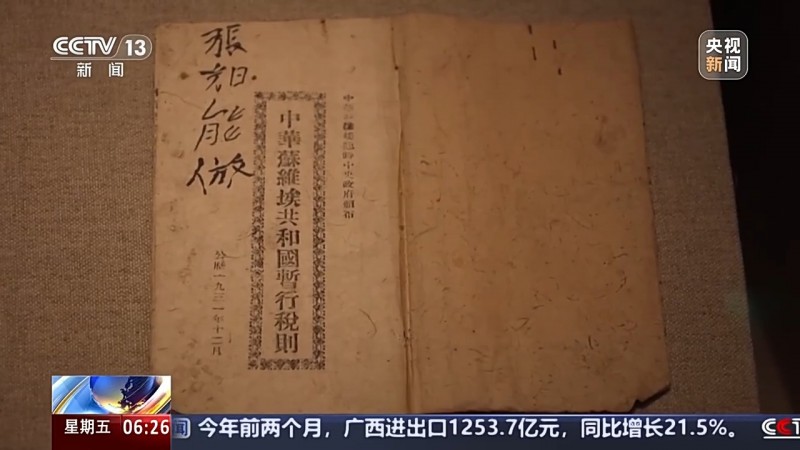 CCTV 13
新闻
央视
新闻
中華蘇維埃共和國暫行稅則
公歷一九三一年十二月
張
能
星期五 06:26
闻 今年前两个月，广西进出口1253.7亿元，同比增长21.5%。